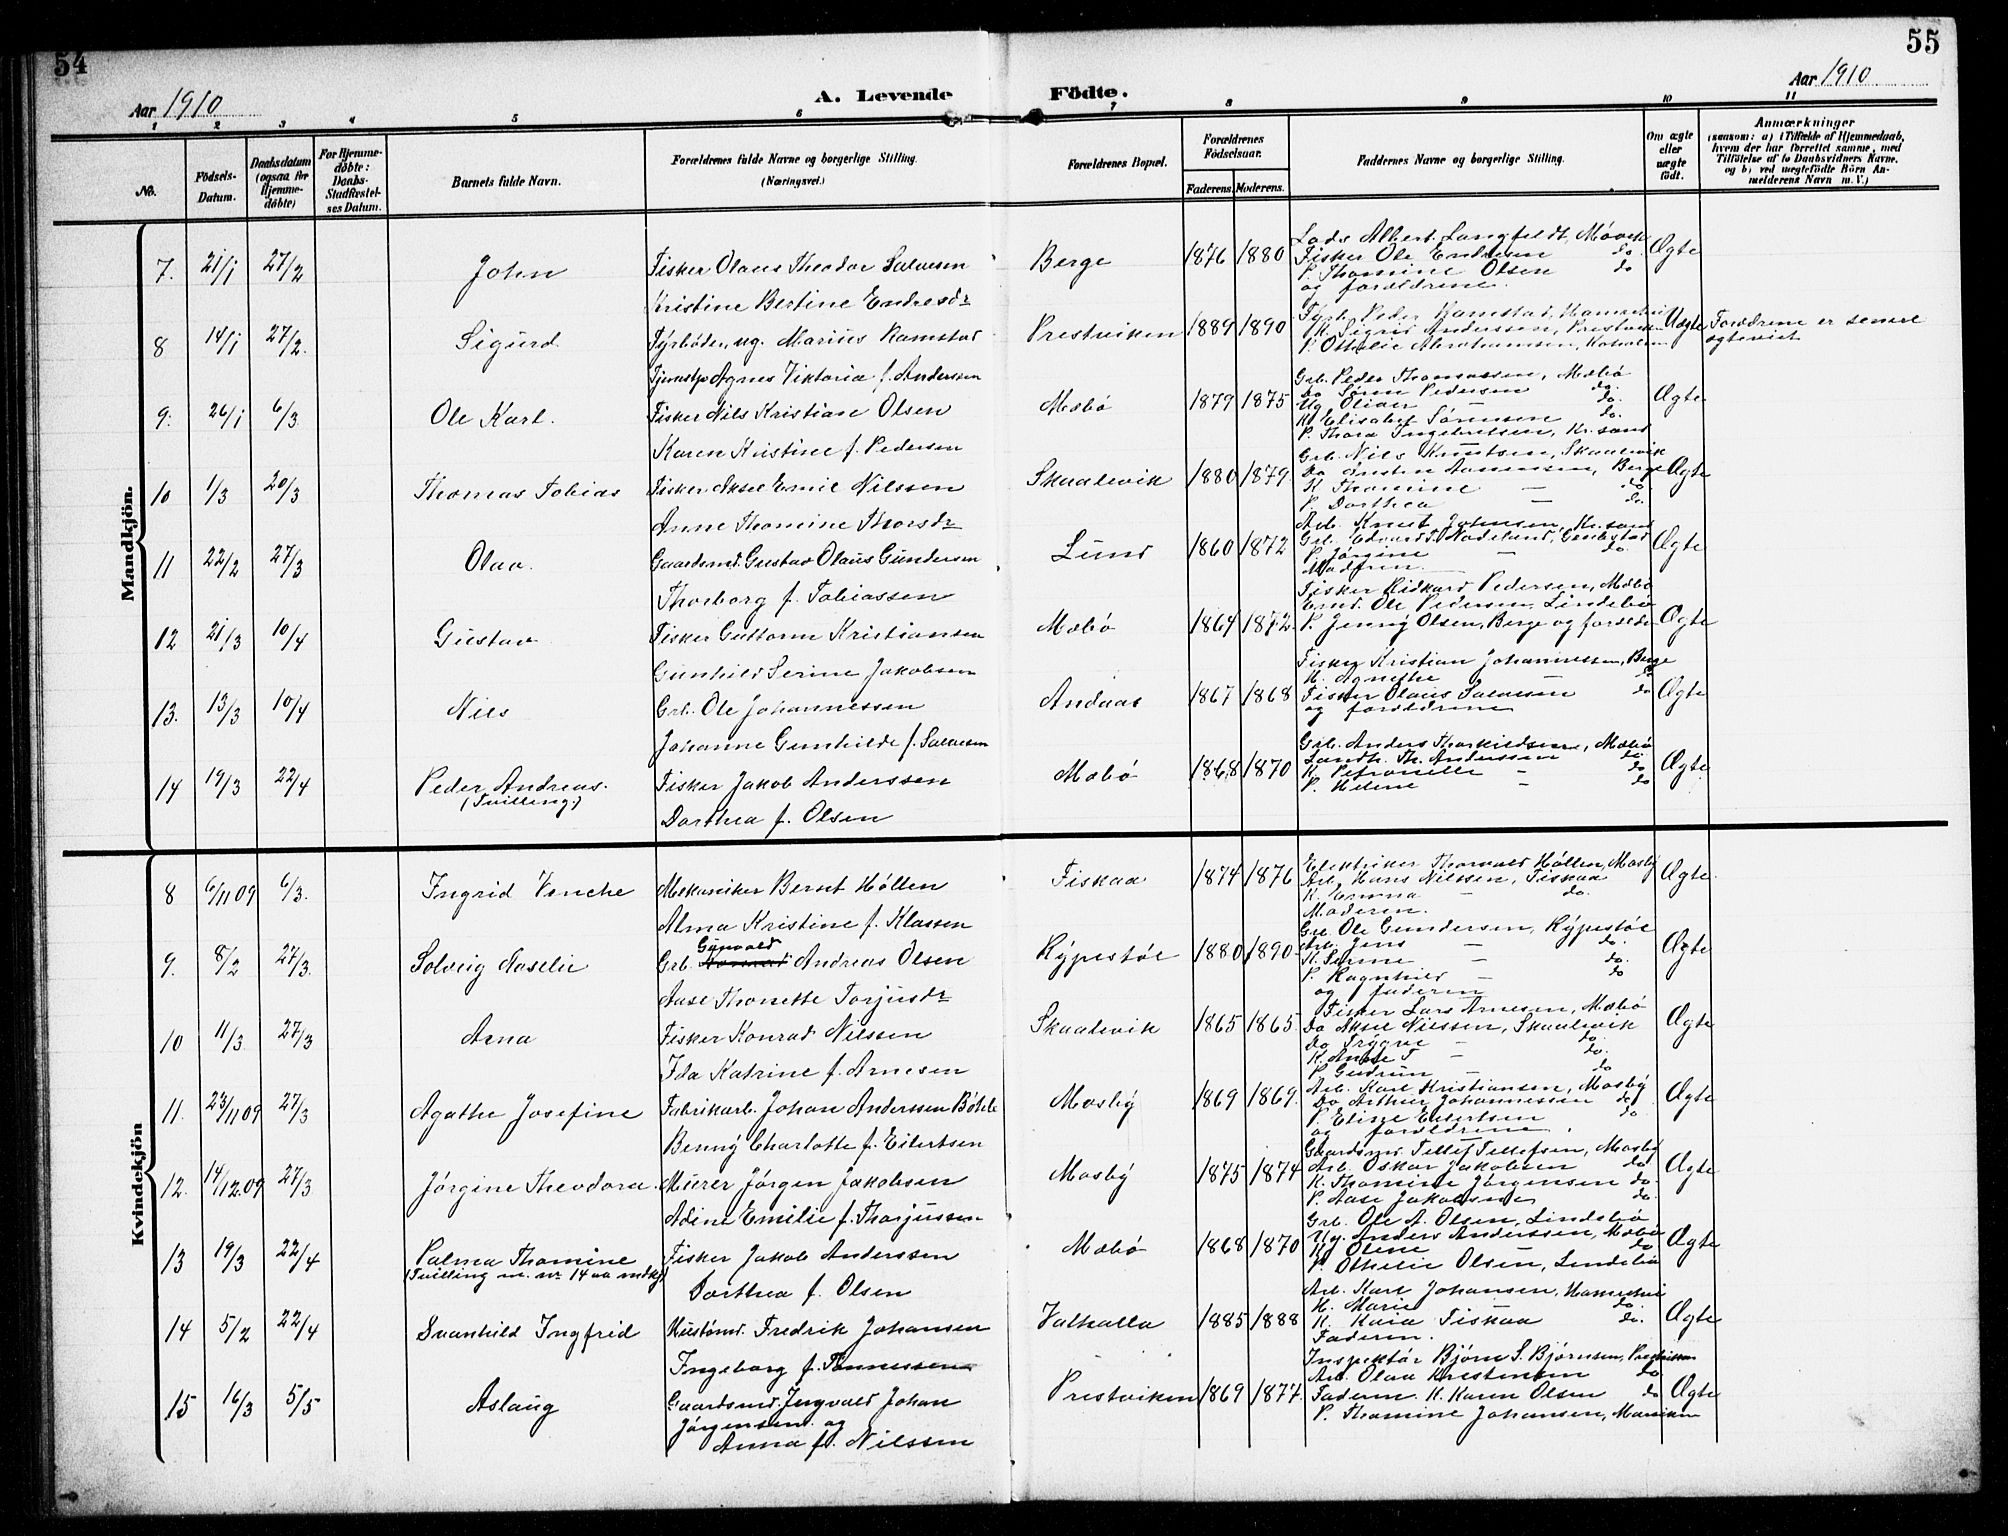 54
55
Aar 1910
A. Levende
Födte.
Aar 1910
1 2 3 4 5 6 7 8 9 10 11
No.
Födsels-
Datum.
Daabsdatum
(ogsaa for
Hjemme-
döbte)
For Hjemme-
döbte:
Daabs-
Stadfæstel-
ses Datum.
Barnets fulde Navn.
Forældrenes fulde Navne og borgerlige Stilling.
(Næringsvei.)
Forældrenes Bopæl.
Forældrenes
Födselsaar.
Faderens. Moderens.
Faddernes Navne og borgerlige Stilling.
Om ægte
eller
uægte
födt.
Anmærkninger
(saasom: a) i Tilfælde af Hjemmedaab,
hvem der har forrettet samme, med
Tilföielse af to Daabsvidners Navne,
og b) ved uægtefödte Börn An-
melderens Navn m. V.)
Mandkjön.
7. 21/1 27/2 John
Fisker Olaus Theodor Salvesen
Kristine Bertine Endresdr
Berge 1876 1880
Lods Albert Langfeldt, Møvik
Fisker Ole Endresen do.
P. Thomine Olsen do
og forældrene.
Ægte
8 14/1 27/2. Sigurd
Fyrbøder, ug. Marius Ramstad
Tjenestp Agnes Viktoria f. Anderssen
Prestviken 1889 1890
Fyrb. Peder Ramstad,
K. Sigrid Anderssen, Prestviken
P. Othilie Abrahamsen,
Uægte
Forældrene er senere
egteviet
9. 26/1 6/3 Ole Karl.
Fisker Nils Kristian Olsen
Karen Kristine f. Pedersen
Mæbø 1879 1875
Grb. Peder Thomassen, Mæbø
do Sønn Pedersen do.
Ug. Oliver — do.
K. Elisabet Sørensen do.
P. Thora Ingebretsen, Kr.sand
Ægte
10 1/3 20/3 Thomas Tobias
Fisker Aksel Emil Nilssen
Anne Thomine Thorsdr
Skaalevik 1880 1879.
Grb. Nils Knutsen, Skaalevik
Do Aanensen, Berge
K Thomine — do
P. Dorthea — do.
Ægte
11 22/2 27/3 Olav.
Gaardsmd. Gustav Olaus Gundersen
Thorborg f. Tobiassen
Lund 1860 1872
Arb. Knut Johnsen, Kr.sand
Grb. Edvard Nodeland,
P. Jørgine — do.
Modren.
Ægte
12 21/3 10/4 Gustav
Fisker Guttorm Kristiansen
Gunhild Serine Jakobsen
Mæbø 1864 1872.
Fisker Rickard Pedersen, Mæbø
Emd. Ole Pedersen, Lindebø
P. Jenny Olsen, Berge og foreldr.
Ægte
13. 13/3 10/4 Nils
Grb. Ole Johannessen
Johanne Gunhilde f. Salvesen
Andaas 1867 1868
Fisker Kristian Johannessen, Berge
K. Agnethe do
Fisker Olaus Salvesen do
og forældrene
Ægte
14 19/3 22/4 Peder Andreas.
(Tvilling)
Fisker Jakob Anderssen
Dorthea f. Olsen
Mæbø 1868 1870
Grb. Anders Thorkildsen, Mæbø
Landh. Th. Anderssen do
K. Petronelle — do
P. Helene — do
Ægte
Kvindekjön
8 6/11 09 6/3. Ingrid Venche
Mekaniker Bernt Høllen
Alma Kristine f. Klassen
Fiskaa 1874 1876
Elektriker Thorvald Høllen, Mosby
Arb. Hans Nilssen, Fiskaa
K. Emma — do.
Moderen.
Ægte.
9. 8/2 27/3. Solveig Aaselie
Gunvald
Grb. Andreas Olsen
Aase Thonette Torjusdr
Rypestøl 1880 1890
Grb. Ole Gundersen, Rypestøl
Arb. Jens — do.
K. Serine — do.
P. Ragnhild — do
og faderen
Ægte
10 11/3 27/3 Arna
Fisker Konrad Nilssen
Ida Katrine f. Arnesen
Skaalevik 1865 1865
Fisker Lars Arnesen, Mæbø
Do Aksel Nilssen, Skaalevik
Do Trygve — do.
K. Anne T — do.
P. Gudrun — do
Ægte
11. 23/11 09 27/3 Agathe Josefine
Fabrikarb. Johan Anderssen Bøhele
Benny Charlotte f. Eilertsen
Mosby 1869 1869.
Arb. Karl Kristiansen, Mosby
Do Arthur Johannessen do
P. Eline Eilertsen do
og foreldrene.
Ægte
12. 14/12.09 27/3 Jørgine Theodora.
Murer Jørgen Jakobsen
Adine Emilie f. Thorjussen
Mosby 1875 1874
Gaardsmd. Tellef Tellefsen, Mosby
Arb. Oskar Jakobsen do
K. Thomine Jørgensen do.
P. Aase Jakobsen do.
Ægte
13 19/3 22/4 Palma Thomine
(Tvilling m. nr 14 aa mdkj)
Fisker Jakob Anderssen
Dorthea f. Olsen
Mæbø 1868 1870
Grb. Ole A. Olsen, Lindebø
Ug. Anders Anderssen, Mæbø
K. Olene do
P. Othilie Olsen, Lindebø
Ægte
14 5/2 22/4 Svanhild Ingfrid
Husømd. Fredrik Johansen
Ingeborg f. Tønnessen
Valhalla 1885 1888
Arb. Karl Johansen,
K. Marie do.
K. Kaia Fiskaa do.
Faderen.
Ægte
15 16/3 5/5 Aslaug
Gaardsmd. Jngvald Johan
Jørgensen og
Anna f. Nilssen
Prestviken 1869 1877.
Inspektør Bjørn S. Bjørnsen, Prestviken
Arb. Olaa Kristensen do.
Faderen. K. Karen Olsen do
P. Thomine Johansen,
Ægte